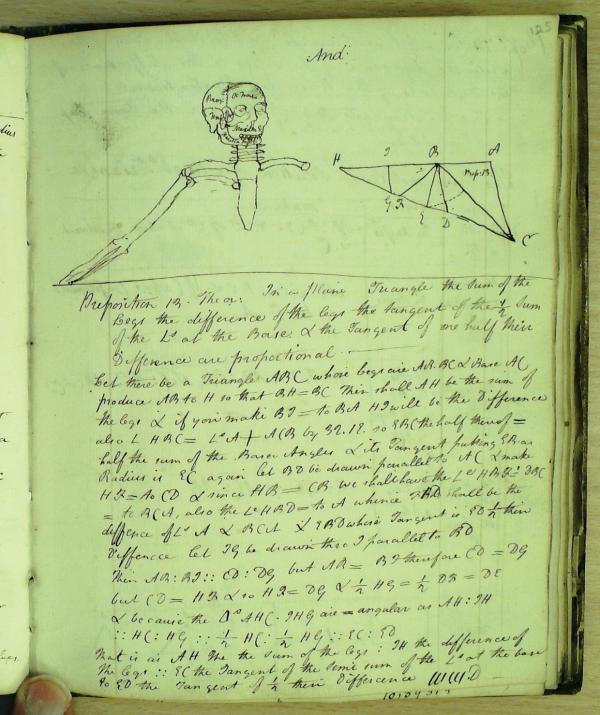 125
And:
H I B A
Prop: 13
G K
E D
C
Preposition 13. Theor: In a plane Triangle the sum of the
Legs the difference of the legs the tangent of the ½ sum
of the Ls at the Base & the Tangent of one half their
Difference are proportional
Let there be a Triangle ABC whose legs are AB. BC & Base AC
produce AB to H so that BH = BC Then shall AH be the sum of
the legs & if you make BI = to BA HI will be the Difference
also L HBC = Ls A + ACB by 32.12. so EBC the half thereof =
half the sum of the Base Angles & its Tangent putting EB as
Radius is EC again let BD be drawn parallel to AC & make
HK = to CD & since HB = CB we shall have the Ls HBK = DBC
= to BCA, also the Ls HBD = to A whence shall be the
diffence of Ls A & BCA & EBD whose Tangent is ED ½ their
Difference Let IG be drawn thro I parallel to BD
Then AB : BI :: CD : DG but AB = BI therefore CD = DG
but CD = HK & so HK = DG & ½ HG = ½ DK = DE
& because the Ds AHC. IHG are = angular as AH : IH
:: HC : HG :: ½ HC : ½ HG :: EC : ED
That is as AH the the sum of the legs : IH the difference of
the legs :: EC the Tangent of the semi sum of the Ls at the base
to ED the Tangent of ½ their Difference WWD